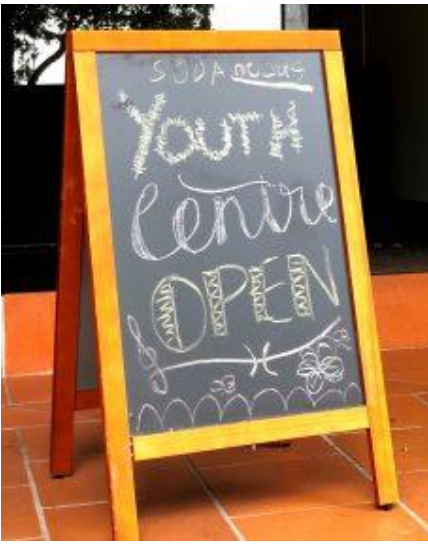 SODA
YOUTH
Centre
OPEN